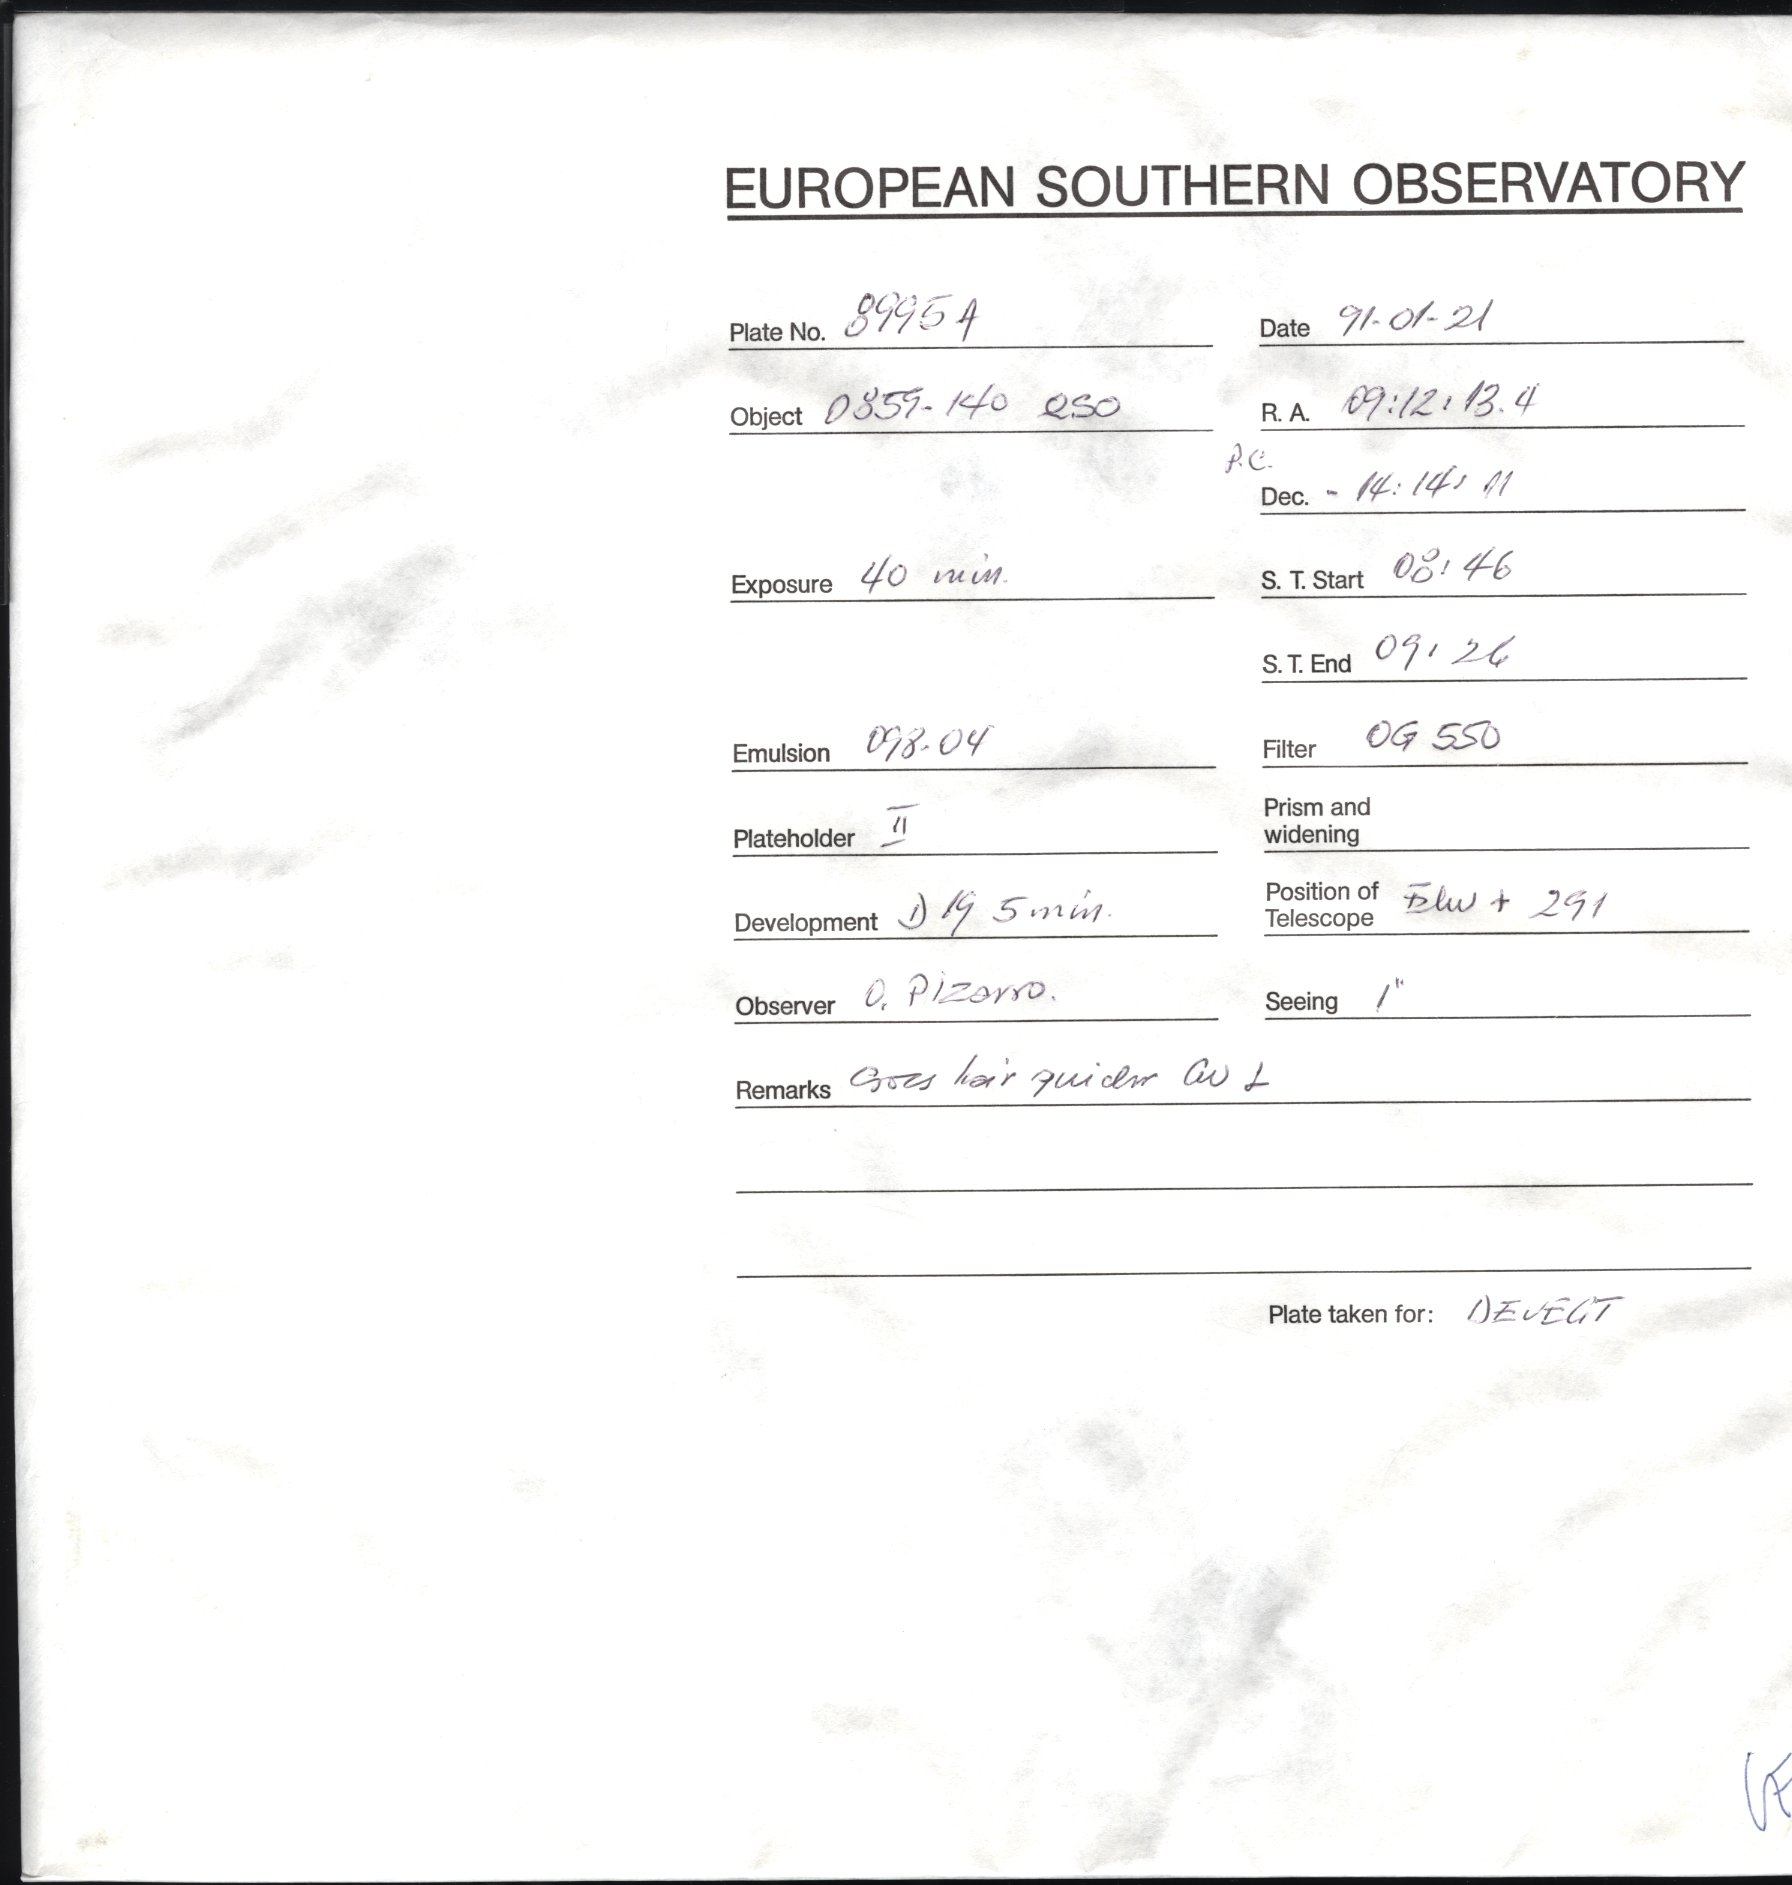 EUROPEAN SOUTHERN OBSERVATORY
Plate No. 8995 A
Date 91-01-21
Object 0859-140 QSO
R. A. 09:12:13.4
P.C.
Dec. - 14:14:11
Exposure 40 min.
S. T. Start 08:46
S. T. End 09:26
Emulsion 098-04
Filter OG 550
Plateholder II
Prism and
widening
Development D 19 5 min.
Position of
Telescope + 291
Observer O. Pizarro.
Seeing 1"
Remarks hair guider
Plate taken for: DEVEGT